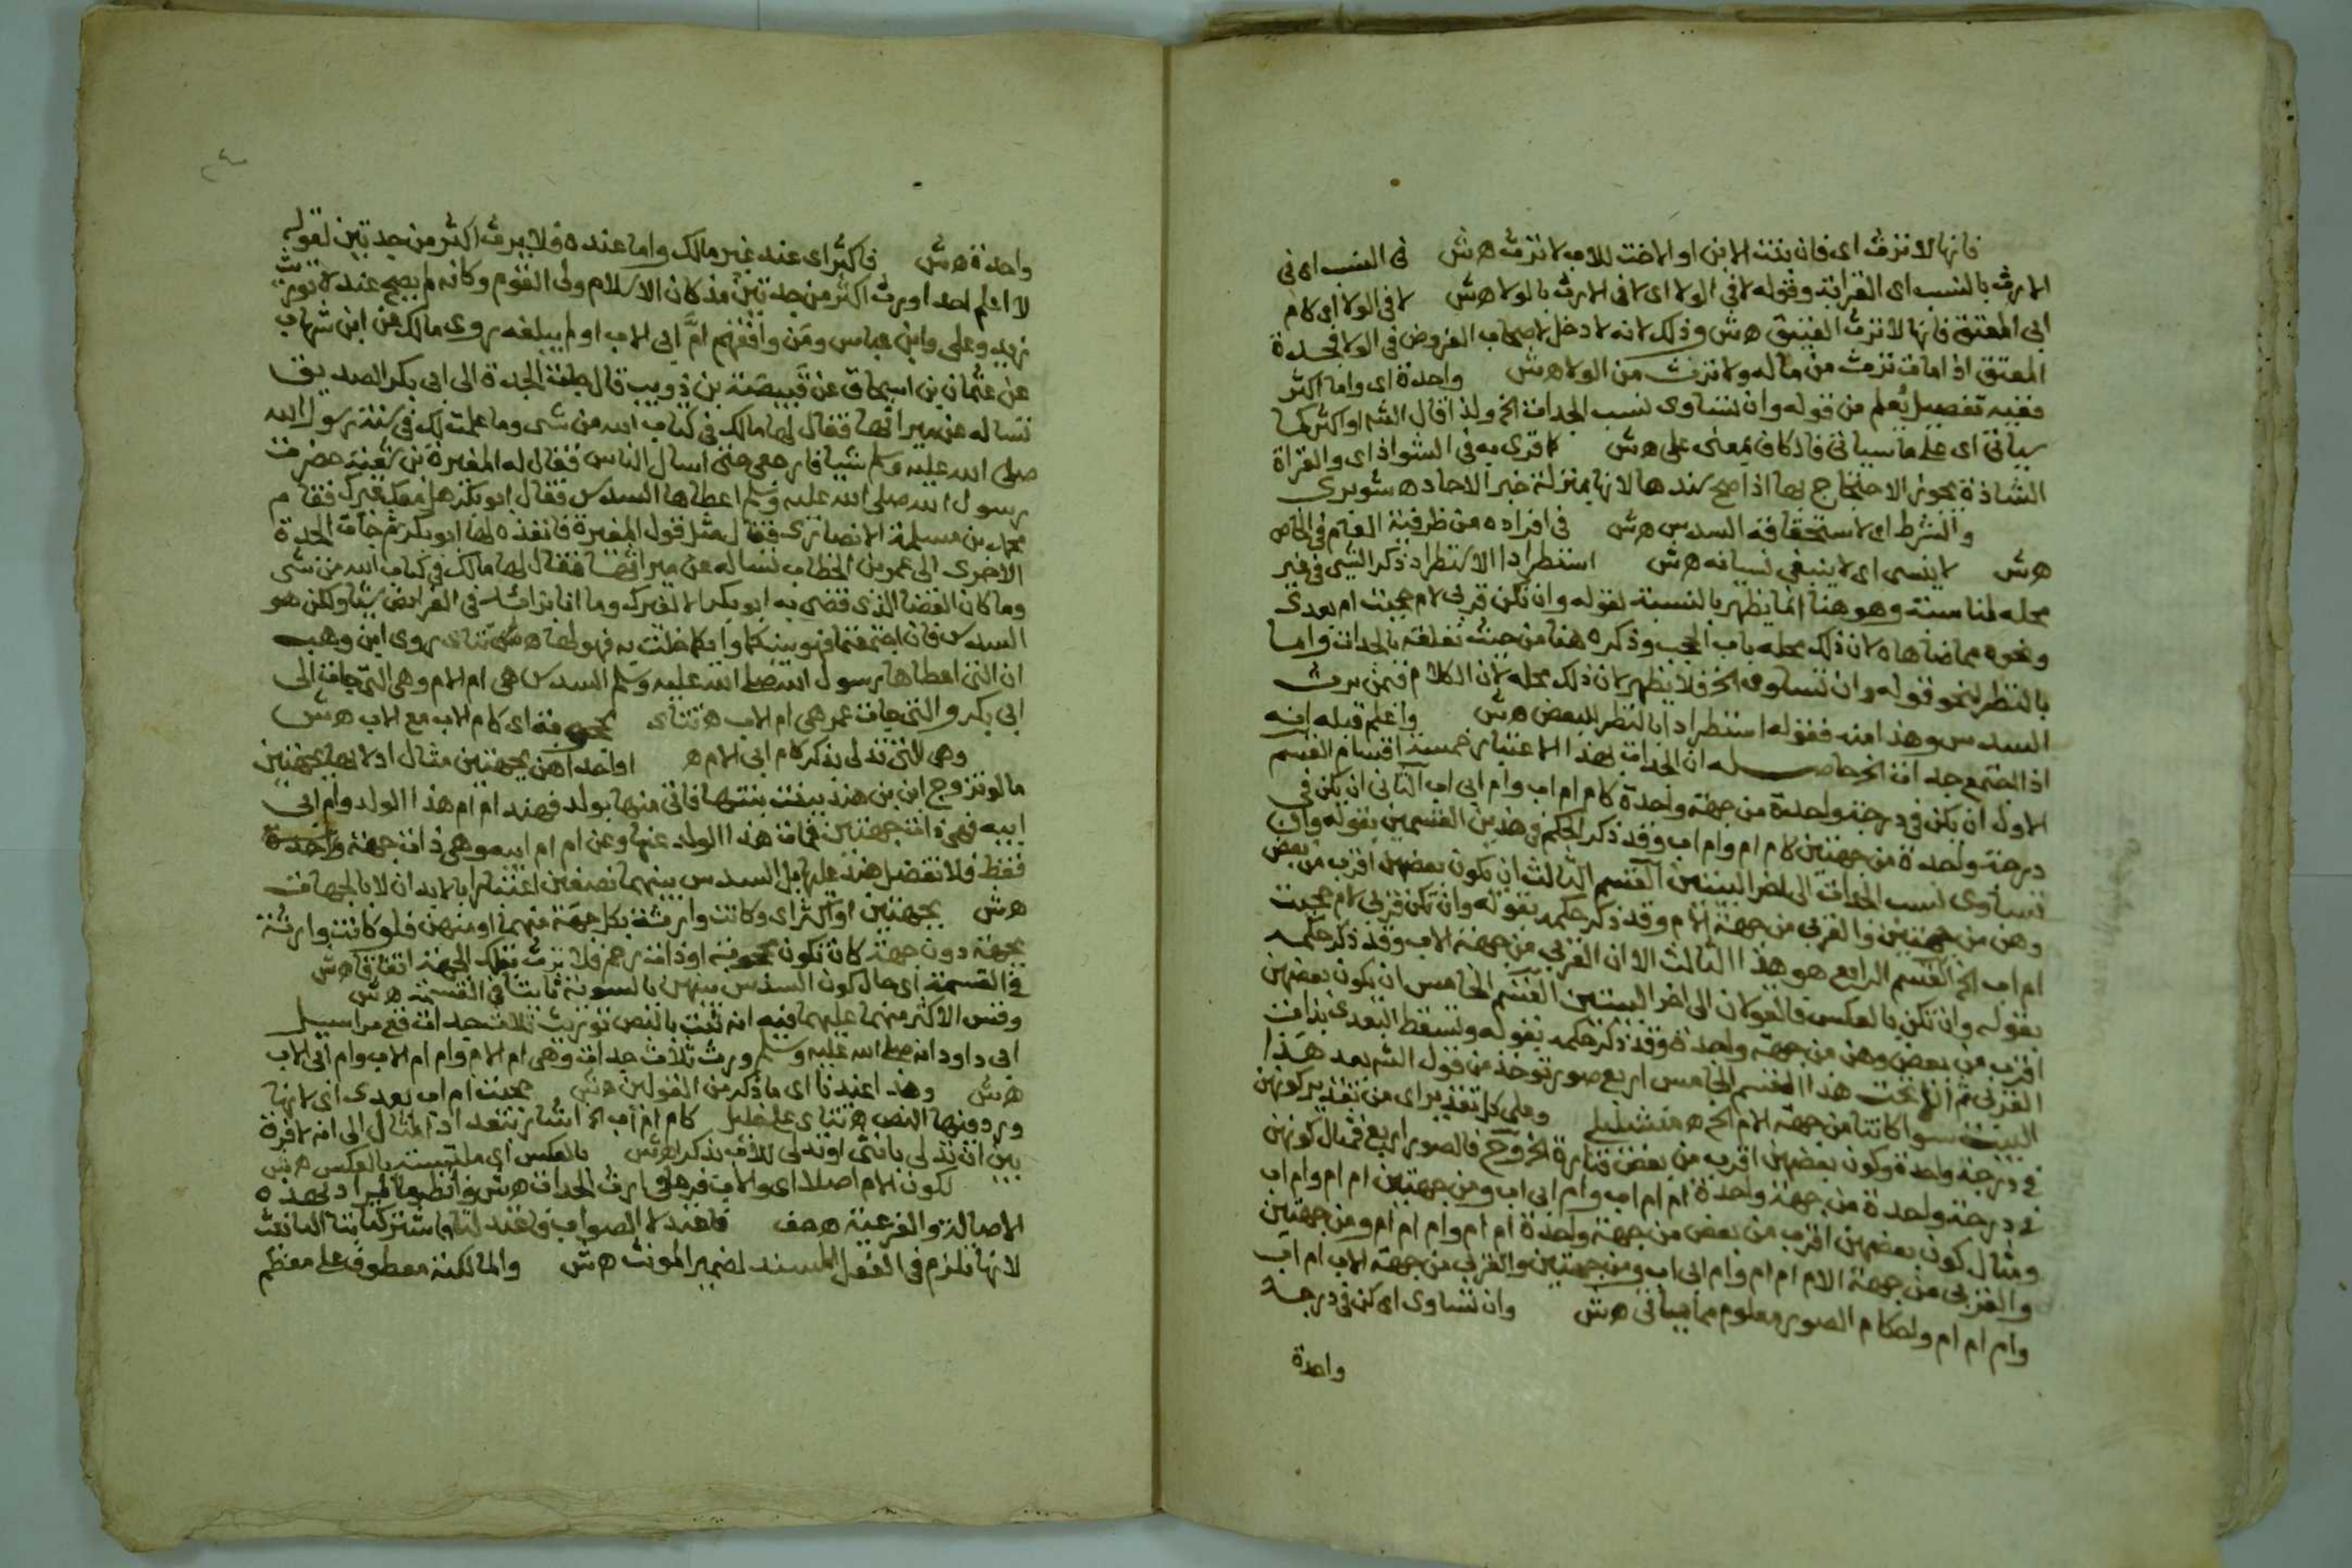 فانها لا ترث اى فان بنت الابن او الاخت للاب لا ترث هش في النسب اى في
الارث بالنسب اى القرابة وقوله لا في الولا اى لا في الارث بالولا هش لا في الولا اى كام
ابى المعتق فانها لا ترث العتيق هش وذلك لانه لا دخل لاصحاب الفروض في الولا فجدة
المعتق اذا مات ترث من ماله ولا ترث من الولا هش واحدة اى واما اكثر
ففيه تفصيل يعلم من قوله وان تساوى نسب الجدات الخ ولذا قال الشه او اكثر كما
سياتى اى على ما سياتى فالكاف بمعنى على هش كما قرى به في الشواذ اى والقراة
الشاذة يجوز الاحتجاج بها اذا صح سندها لانها بمنزلة خبر الاحاد ه شوبرى
والشرط اى لاستحقاقه السدس هش في افراده من ظرفية العام في الخاص
هش لا ينسى اى لا ينبغى نسيانه هش استطرادا الاستطراد ذكر الشى في غير
محله لمناسبة وهو هنا انما يظهر بالنسبة لقوله وان تكن قربى لام حجبت ام بعدى
ونحوه مما ضاهاه لان ذلك محله باب الحجب وذكره هنا من حيث تعلقه بالجدات واما
بالنظر لنحو قوله وان تساوى الخ فلا يظهر لان ذلك محله لان الكلام فيمن يرث
السدس وهذا منه فقوله استطرادا بالنظر للبعض هش واعلم قبله انه
اذا اجتمع جدات الخ حاصله ان الجدات بهذا الاعتبار خمسة اقسام القسم
الاول ان يكن في درجة واحدة من جهة واحدة كام ام اب وام ابى اب الثانى ان يكن في
درجة واحدة من جهتين كام ام وام اب وقد ذكر الحكم في هذين القسمين بقوله وان
تساوى نسب الجدات الى اخر البيتين القسم الثالث ان يكون بعضهن اقرب من بعض
وهن من جهتين والقربى من جهة الام وقد ذكر حكمه بقوله وان تكن قربى لام حجبت
ام اب الخ القسم الرابع هو هذا الثالث الا ان القربى من جهة الاب وقد ذكر حكمه
بقوله وان تكن بالعكس فالقولان الى اخر البيتين القسم الخامس ان يكون بعضهن
اقرب من بعض وهن من جهة واحدة وقد ذكر حكمه بقوله وتسقط البعدى بذات
القربى ثم ان تحت هذا القسم الخامس اربع صور تؤخذ من قول الشه بعد هذا
البيت سوا كانتا من جهة الام الخ ه منشليلى وعلى كل تقدير اى من تقدير كونهن
في درجة واحدة وكون بعضهن اقرب من بعض فتارة الخ وح فالصور اربع فمثال كونهن
في درجة واحدة من جهة واحدة ام ام اب وام ابى اب ومن جهتين ام ام وام اب
ومثال كون بعضهن اقرب من بعض من جهة واحدة ام ام وام ام ام ومن جهتين
والقربى من جهة الام ام ام وام ابى اب ومن جهتين والقربى من جهة الاب ام اب
وام ام ام واحكام الصور معلوم مما سياتى هش وان تساوى اى كن في درجة
واحدة
واحدة هش فاكثر اى عند غير مالك واما عنده فلا يرث اكثر من جدتين لقوله
لا اعلم احدا ورث اكثر من جدتين منذ كان الاسلام ولى القوم وكانه لم يصح عنده توريث
زيد وعلى وابن عباس ومن وافقهم ام ابى الاب او لم يبلغه روى مالك عن ابن شهاب
عن عثمان بن اسحاق عن قبيصة بن ذويب قال جاءت الجدة الى ابى بكر الصديق
تساله عن ميراثها فقال لها مالك في كتاب الله من شى وما علمت لك في سنة رسول الله
صلى الله عليه وسلم شيا فارجعى حتى اسال الناس فقال له المغيرة بن شعبة حضرت
رسول الله صلى الله عليه وسلم اعطاها السدس فقال ابو بكر هل معك غيرك فقام
محمد بن مسلمة الانصارى فقال مثل قول المغيرة فانفذه لها ابو بكر ثم جات الجدة
الاخرى الى عمر بن الخطاب تساله عن ميراثها فقال لها مالك في كتاب الله من شى
وما كان القضا الذى قضى به ابو بكر الا لغيرك وما انا بزائد في الفرائض شيا ولكن هو
السدس فان اجتمعتما فهو بينكما وايكما خلت به فهو لها ه تتاى روى ابن وهب
ان التى اعطاها رسول الله صلى الله عليه وسلم السدس هى ام الام وهى التى جات الى
ابى بكر والتى جات عمر هى ام الاب ه تتاى محجوبة اى كام الاب مع الاب هش
وهى لانثى تدلى بذكر كام ابى الام ه او احداهن بجهتين مثال ادلائها بجهتين
ما لو تزوج ابن بن هند ببنت بنتها فاتى منها بولد فهند ام ام هذا الولد وام ابى
ابيه فهى ذات جهتين فمات هذا الولد عنها وعن ام ام ابيه وهى ذات جهة واحدة
فقط فلا تفضل هند عليها بل السدس بينهما نصفين اعتبارا بالابدان لا بالجهات
هش بجهتين او اكثر اى وكانت وارثة بكل جهة منهما او منهن فلو كانت وارثة
بجهة دون جهة كان تكون محجوبة او ذات رحم فلا ترث بتلك الجهة اتفاقا هش
في القسمة اى حال كون السدس بينهن بالسوية ثابتا في القسمة هش
وقس الاكثر منهما عليهما فيه انه ثبت بالنص توريث ثلاث جدات فع مراسيل
ابى داود انه صلى الله عليه وسلم ورث ثلاث جدات وهى ام الام وام ام الاب وام ابى الاب
هش وهذا عندنا اى ما ذكر من القولين هش حجبت ام اب بعدى اى لانها
ورد فيها النص ه تتاى على خليل كام ام اب الخ اشار بتعداد المثال الى انه لا فرق
بين ان تدلى بانثى او تدلى للاب بذكر هش بالعكس اى ملتبسة بالعكس هش
لكون الام اصلا اى والاب فرعا في ارث الجدات هش وانظر ما المراد بهذه
الاصالة والفرعية ه صف فاعند لا الصواب فاعند لتا واشترك كتابتا التانيث
لانها تلزم في الفعل المسند لضمير المونث هش والمالكية معطوف على معظم